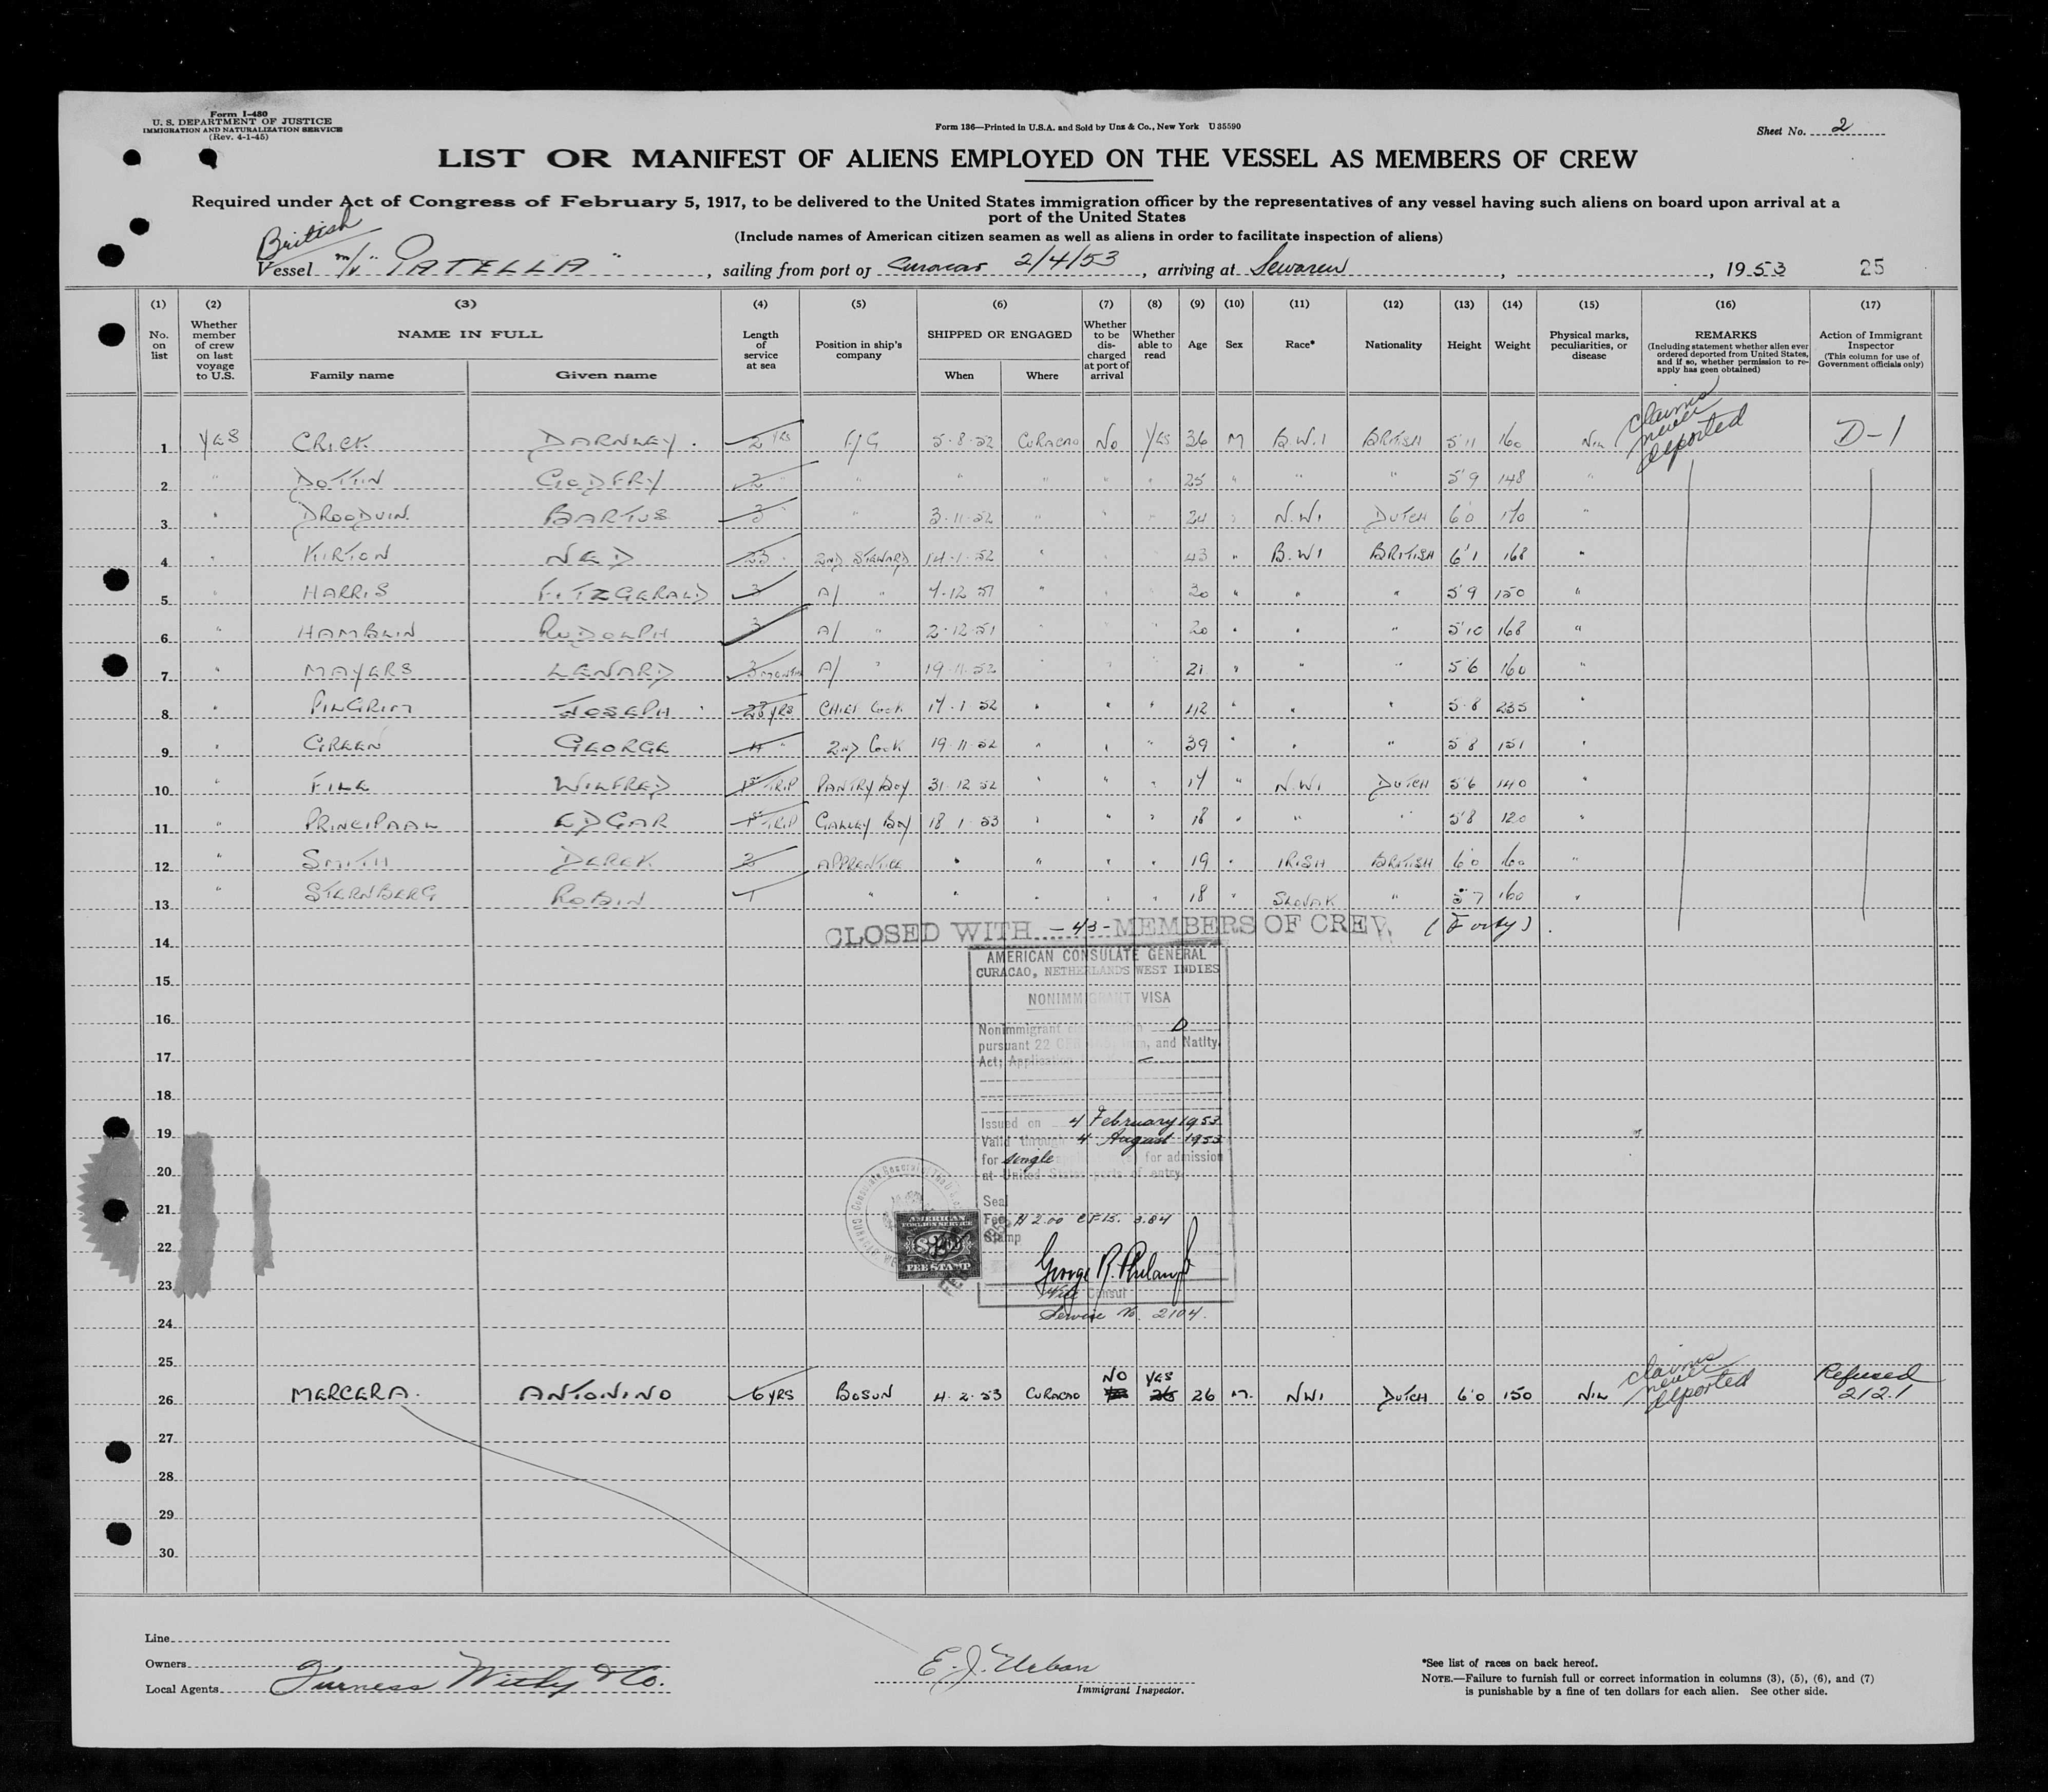 Form I-480
U. S. DEPARTMENT OF JUSTICE
IMMIGRATION AND NATURALIZATION SERVICE
(Rev. 4-1-45)
Form 136—Printed in U.S.A. and Sold by Unz & Co., New York U 35590
Sheet No. 2
LIST OR MANIFEST OF ALIENS EMPLOYED ON THE VESSEL AS MEMBERS OF CREW
Required under Act of Congress of February 5, 1917, to be delivered to the United States immigration officer by the representatives of any vessel having such aliens on board upon arrival at a
port of the United States
(Include names of American citizen seamen as well as aliens in order to facilitate inspection of aliens)
British
Vessel m/v "PATELLA", sailing from port of Curacao 2/4/53, arriving at Sewaren, , 1953 25
(1) (2) (3) (4) (5) (6) (7) (8) (9) (10) (11) (12) (13) (14) (15) (16) (17)
No. on list
Whether member of crew on last voyage to U.S.
NAME IN FULL
Family name
Given name
Length of service at sea
Position in ship's company
SHIPPED OR ENGAGED
When
Where
Whether to be discharged at port of arrival
Whether able to read
Age
Sex
Race*
Nationality
Height
Weight
Physical marks, peculiarities, or disease
REMARKS
(Including statement whether alien ever ordered deported from United States, and if so, whether permission to re-apply has geen obtained)
Action of Immigrant Inspector
(This column for use of Government officials only)
claims never deported
1 YES CRICK DARNLEY. 2 YRS F/G 5-8-52 CURACAO NO YES 36 M B.W.I BRITISH 5'11 160 NIL D-1
2 " DOTTIN GODFRY 2 " " " " " " 25 " " " 5'9 148 "
3 " DROODUIN. BARTUS 3 " " 3-11-52 " " " 24 " N.WI DUTCH 6'0 170 "
4 " KIRTON NED 23 " 2ND STEWARD 14-1-52 " " " 43 " B.WI BRITISH 6'1 168 "
5 " HARRIS FITZGERALD 3 A/ " 7-12-51 " " " 20 " " " 5'9 150 "
6 " HAMBLIN RUDOLPH 3 A/ " 2-12-51 " " " 20 " " " 5'10 168 "
7 " MAYERS LENARD 3 MONTHS A/ " 19-11-52 " " " 21 " " " 5'6 160 "
8 " PILGRIM JOSEPH 28 YRS CHIEF COOK 17-1-52 " " " 42 " " " 5-8 235 "
9 " GREEN GEORGE 4 " 2ND COOK 19-11-52 " " " 39 " " " 5'8 151 "
10 " FILE WILFRED 1ST TRIP PANTRY BOY 31-12-52 " " " 17 " N.WI DUTCH 5'6 140 "
11 " PRINCIPAAL EDGAR 1ST TRIP GALLEY BOY 18-1-53 " " " 18 " " " 5'8 120 "
12 " SMITH DEREK 3 APPRENTICE " " " " 19 " IRISH BRITISH 6'0 160 "
13 " STERNBERG ROBIN 1 " " " " " 18 " SLOVAK " 5'7 160 "
14 CLOSED WITH -43- MEMBERS OF CREW (Forty).
AMERICAN CONSULATE GENERAL
15 CURACAO, NETHERLANDS WEST INDIES
NONIMMIGRANT VISA
16
Nonimmigrant D
pursuant 22 and Natlty.
17 Act; Application
18
Issued on 4 February 1953
19 Valid through 4 August 1953
for single for admission
20 at United States ports of entry
Seal
21 Fee # 2.00 CF 15. 3.84
Stamp
AMERICAN
FOREIGN SERVICE
FEE STAMP
22
23
Vice Consul
24 Service No. 2104.
25
claims never deported
NO YES
26 MERCERA. ANTONINO 6 YRS BOSUN 4-2-53 CURACAO 26 M. NWI DUTCH 6'0 150 NIL Refused 212.1
27
28
29
30
Line
Owners
Local Agents Furness Withy & Co.
E. J. Urban
Immigrant Inspector.
*See list of races on back hereof.
NOTE.—Failure to furnish full or correct information in columns (3), (5), (6), and (7)
is punishable by a fine of ten dollars for each alien. See other side.